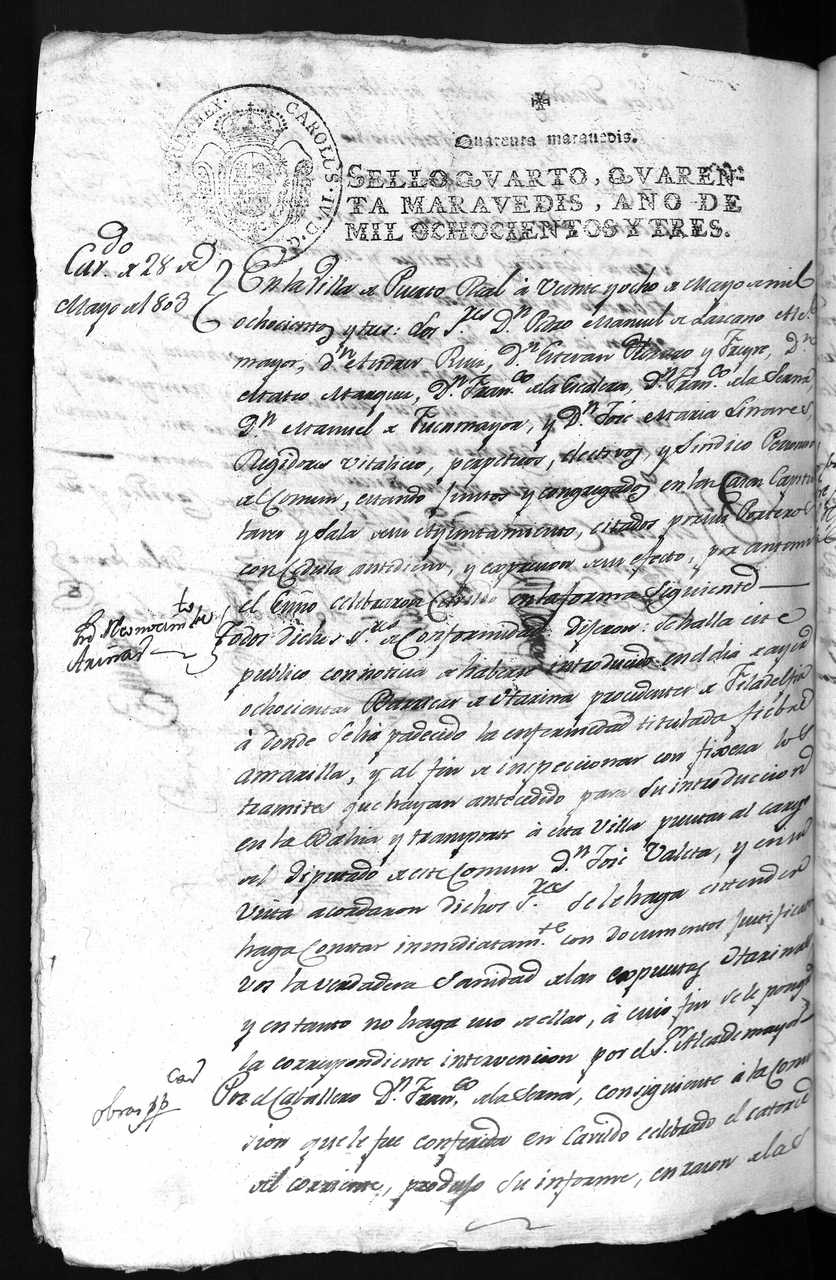 CAROLUS · IV · D · G ·
REX ·
Quarenta maravedis.
SELLO QVARTO, QVAREN-
TA MARAVEDIS, AÑO DE
MIL OCHOCIENTOS Y TRES.
Cav.do de 28 de
Mayo de 1803
En la Villa de Puerto Real à Veinte y ocho de Mayo de mil
ochocientos y tres: Los S.res D.n Pedro Manuel de Lazcano Alc.e
mayor, D.n Andres Ruiz, D.n Estevan y Freyre, D.n
Mateo Marquez, D.n Fran.co de la Escalera, D.n Fran.co de la Serna
D.n Manuel de Fuenmayor, y D.n José Maria Linares
Regidores Vitalicios, perpetuos, electivos, y Sindico Personero
del Comun, estando juntos y congregados en las Casas Capitu
lares y Sala de su Ayuntamiento, citados por su Portero
con Cedula antediem, y expresion de su efecto, por ante mi
el Essno celebraron Cavildo en la forma siguiente
Reconocim.to de
Arinas
Todos dichos S.res de Conformidad Dijeron: se halla este
publico con noticia de haverse introducido en el dia de ayer
ochocientos Barricas de Harina procedentes de Filadelfia
à donde se ha padecido la enfermedad titulada fiebre
amarilla, y al fin de inspeccionar con fixeza los
tramites que hayan antecedido para su introduccion
en la Bahia y transporte à esta Villa puestas al cargo
del Diputado de este Comun D.n José Valeta, y en su
Vista acordaron dichos S.res se le haga entender
haga constar inmediatam.te con documentos justificati
vos la verdadera Sanidad de las expuestas Harinas
y en tanto no haga uso de ellas, à cuio fin se le ponga
la correspondiente intervencion por el S.r Alcalde mayor
obras pp.cas
Por el Caballero D.n Fran.co de la Serna, consiguiente à la Comi
sion que le fue conferida en Cavildo celebrado el catorce
del corriente, produjo su informe, en razon de las